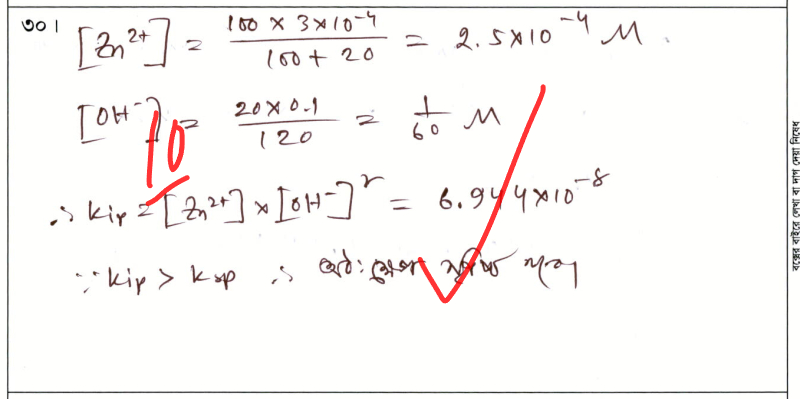 ৩০।
[Zn²⁺] = (100 × 3×10⁻⁴)/(100 + 20) = 2.5×10⁻⁴ M.
[OH⁻] = (20×0.1)/120 = 1/60 M
10
∴ Kip = [Zn²⁺] × [OH⁻]² = 6.944×10⁻⁸
∵ Kip > Ksp ∴ অধঃক্ষেপ সৃষ্টি
বক্সের বাইরে লেখা বা দাগ দেয়া নিষেধ